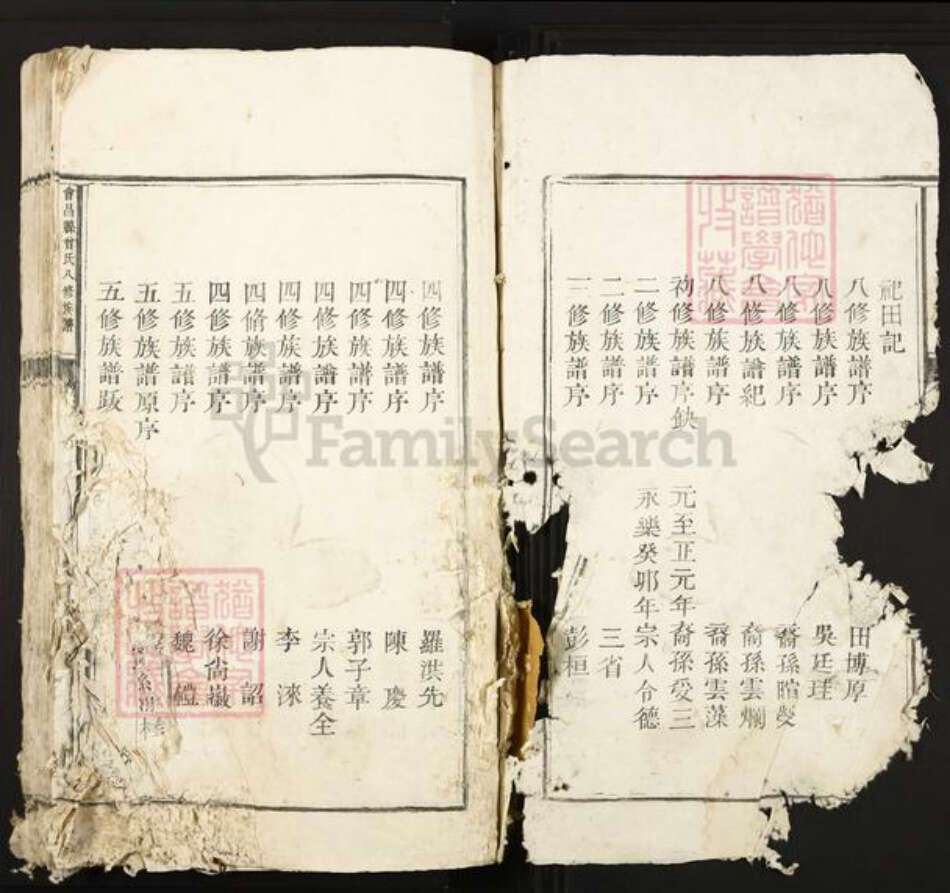 祀田記
八修族譜序 田博原
八修族譜序 吳廷珪
八修族譜序 裔孫暄燮
八修族譜紀 裔孫雲爛
八修族譜序 裔孫雲藻
初修族譜序缺 元至正元年裔孫受三
二修族譜序 永樂癸卯年宗人令德
二修族譜序 三省
三修族譜序 彭桓
四修族譜序 羅洪先
四修族譜序 陳慶
四修族譜序 郭子章
四修族譜序 宗人養全
四修族譜序 李淶
四修族譜序 謝詔
四修族譜序 徐尚
五修族譜序 魏禮
五修族譜原序
五修族譜跋
會昌縣曾氏八修族譜
FamilySearch